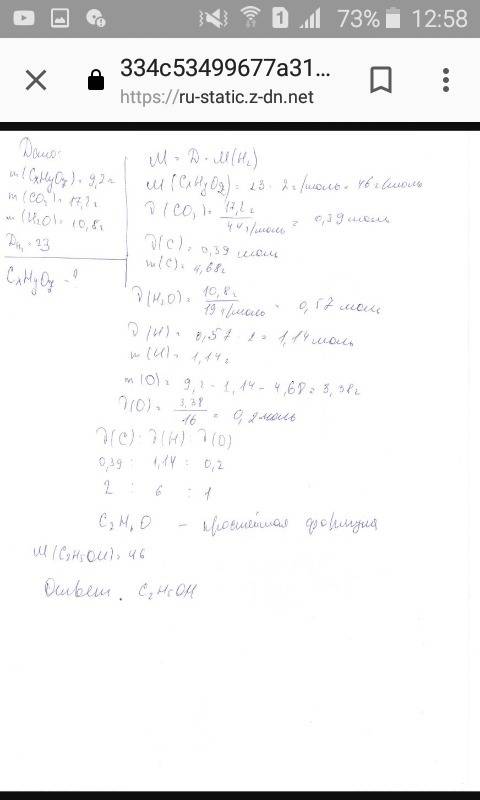 73% 12:58
334c53499677a31...
https://ru-static.z-dn.net
Дано:
m(CxHyOz)=9,2г
m(CO₂)=17,2г
m(H₂O)=10,8г
DH₂=23
CxHyOz - ?
M = D · M(H₂)
M(CxHyOz)= 23 · 2г/моль = 46г/моль
ν(CO₂)= 17,2г / 44г/моль = 0,39 моль
ν(C)= 0,39 моль
m(C)= 4,68г
ν(H₂O)= 10,8г / 19г/моль = 0,57 моль
ν(H)= 0,57 · 2 = 1,14 моль
m(H)= 1,14г
m(O)= 9,2 - 1,14 - 4,68 = 3,38г
ν(O)= 3,38 / 16 = 0,2 моль
ν(C) : ν(H) : ν(O)
0,39 : 1,14 : 0,2
2 : 6 : 1
C₂H₆O - простейшая формула
M(C₂H₅OH)= 46
Ответ: C₂H₅OH